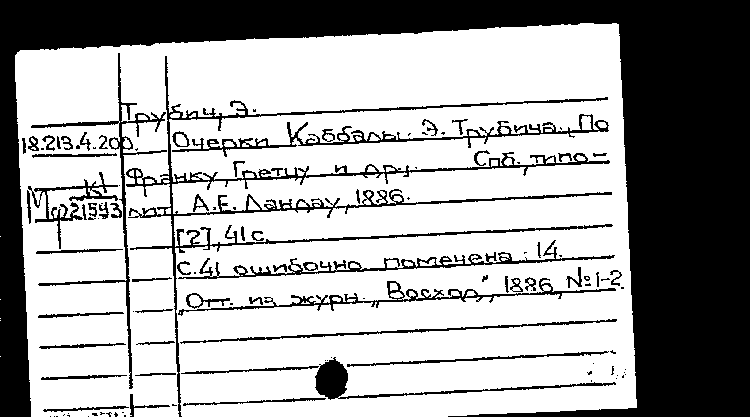 Трубич, Э.
18.213.4.200. Очерки Каббалы. Э. Трубича. (По
Франку, Гретцу и др.). Спб., типо-
К1
Мф 21593 лит. А.Е. Ландау, 1886.
[2], 41 с.
С. 41 ошибочно помечена: 14.
Отт. из журн. „Восход", 1886, №1-2.